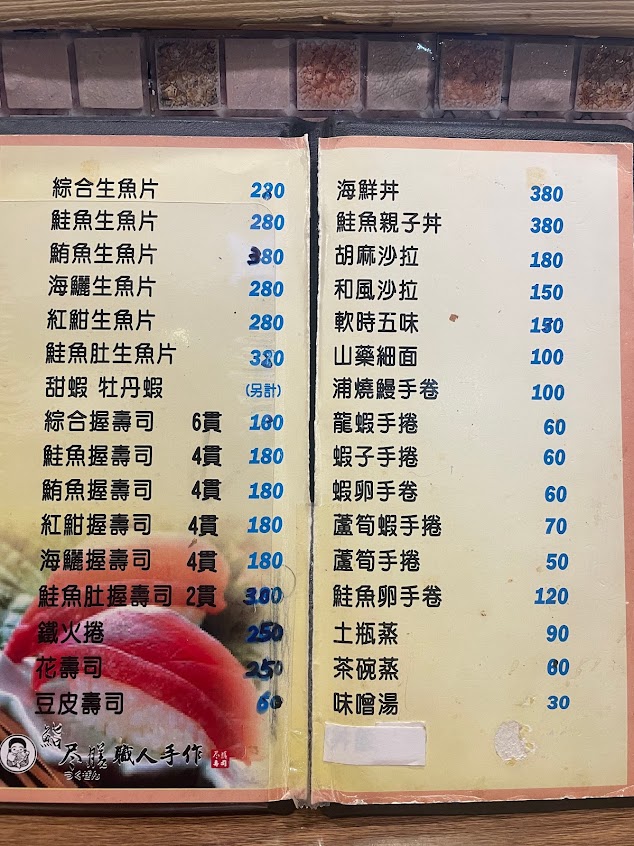 綜合生魚片 280
鮭魚生魚片 280
鮪魚生魚片 380
海鱺生魚片 280
紅魽生魚片 280
鮭魚肚生魚片 380
甜蝦 牡丹蝦 (另計)
綜合握壽司 6貫 180
鮭魚握壽司 4貫 180
鮪魚握壽司 4貫 180
紅魽握壽司 4貫 180
海鱺握壽司 4貫 180
鮭魚肚握壽司 2貫
鐵火捲 250
花壽司 250
豆皮壽司
鮨 尽膳 職人手作
つくぜん
海鮮丼 380
鮭魚親子丼 380
胡麻沙拉 180
和風沙拉 150
軟時五味 150
山藥細面 100
浦燒鰻手卷 100
龍蝦手捲 60
蝦子手捲 60
蝦卵手卷 60
蘆筍蝦手捲 70
蘆筍手捲 50
鮭魚卵手卷 120
土瓶蒸 90
茶碗蒸 60
味噌湯 30